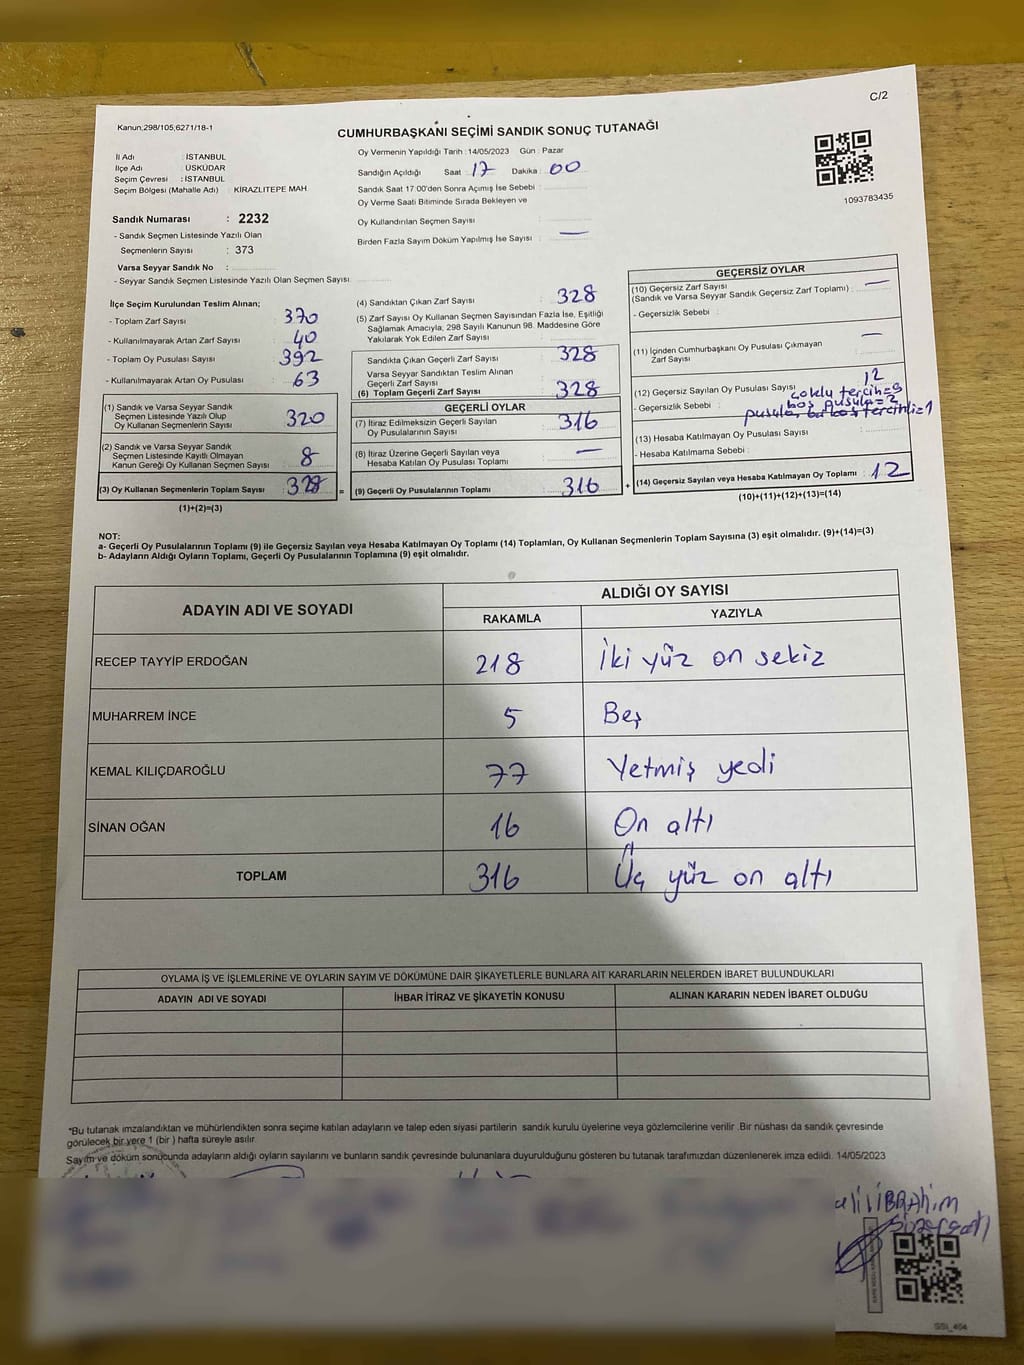 C/2
Kanun;298/105,6271/18-1
CUMHURBAŞKANI SEÇİMİ SANDIK SONUÇ TUTANAĞI
İl Adı : İSTANBUL
İlçe Adı : ÜSKÜDAR
Seçim Çevresi : İSTANBUL
Seçim Bölgesi (Mahalle Adı) : KİRAZLITEPE MAH
Oy Vermenin Yapıldığı Tarih : 14/05/2023 Gün : Pazar
Sandığın Açıldığı Saat : 17 Dakika : 00
Sandık Saat 17:00'den Sonra Açımış İse Sebebi :
Oy Verme Saati Bitiminde Sırada Bekleyen ve
Oy Kullandırılan Seçmen Sayısı :
Birden Fazla Sayım Döküm Yapılmış İse Sayısı : —
1093783435
Sandık Numarası : 2232
- Sandık Seçmen Listesinde Yazılı Olan
Seçmenlerin Sayısı : 373
Varsa Seyyar Sandık No :
- Seyyar Sandık Seçmen Listesinde Yazılı Olan Seçmen Sayısı
İlçe Seçim Kurulundan Teslim Alınan;
- Toplam Zarf Sayısı : 370
- Kullanılmayarak Artan Zarf Sayısı : 40
- Toplam Oy Pusulası Sayısı : 392
- Kullanılmayarak Artan Oy Pusulası : 63
(1) Sandık ve Varsa Seyyar Sandık
Seçmen Listesinde Yazılı Olup
Oy Kullanan Seçmenlerin Sayısı : 320
(2) Sandık ve Varsa Seyyar Sandık
Seçmen Listesinde Kayıtlı Olmayan
Kanun Gereği Oy Kullanan Seçmen Sayısı : 8
(3) Oy Kullanan Seçmenlerin Toplam Sayısı : 328 =
(1)+(2)=(3)
(4) Sandıktan Çıkan Zarf Sayısı : 328
(5) Zarf Sayısı Oy Kullanan Seçmen Sayısından Fazla İse, Eşitliği
Sağlamak Amacıyla, 298 Sayılı Kanunun 98. Maddesine Göre
Yakılarak Yok Edilen Zarf Sayısı :
Sandıkta Çıkan Geçerli Zarf Sayısı : 328
Varsa Seyyar Sandıktan Teslim Alınan
Geçerli Zarf Sayısı
(6) Toplam Geçerli Zarf Sayısı : 328
GEÇERLİ OYLAR
(7) İtiraz Edilmeksizin Geçerli Sayılan
Oy Pusulalarının Sayısı : 316
(8) İtiraz Üzerine Geçerli Sayılan veya
Hesaba Katılan Oy Pusulası Toplamı : —
(9) Geçerli Oy Pusulalarının Toplamı : 316 +
GEÇERSİZ OYLAR
(10) Geçersiz Zarf Sayısı
(Sandık ve Varsa Seyyar Sandık Geçersiz Zarf Toplamı) : —
- Geçersizlik Sebebi :
(11) İçinden Cumhurbaşkanı Oy Pusulası Çıkmayan
Zarf Sayısı : —
(12) Geçersiz Sayılan Oy Pusulası Sayısı : 12
- Geçersizlik Sebebi : çoklu tercih=9
boş pusula=2
pusula, bi boş tercihli=1
(13) Hesaba Katılmayan Oy Pusulası Sayısı :
- Hesaba Katılmama Sebebi :
(14) Geçersiz Sayılan veya Hesaba Katılmayan Oy Toplamı : 12
(10)+(11)+(12)+(13)=(14)
NOT:
a- Geçerli Oy Pusulalarının Toplamı (9) ile Geçersiz Sayılan veya Hesaba Katılmayan Oy Toplamı (14) Toplamları, Oy Kullanan Seçmenlerin Toplam Sayısına (3) eşit olmalıdır. (9)+(14)=(3)
b- Adayların Aldığı Oyların Toplamı, Geçerli Oy Pusulalarının Toplamına (9) eşit olmalıdır.
ADAYIN ADI VE SOYADI
ALDIĞI OY SAYISI
RAKAMLA YAZIYLA
RECEP TAYYİP ERDOĞAN 218 İki yüz on sekiz
MUHARREM İNCE 5 Beş
KEMAL KILIÇDAROĞLU 77 Yetmiş yedi
SİNAN OĞAN 16 On altı
TOPLAM 316 Üç yüz on altı
OYLAMA İŞ VE İŞLEMLERİNE VE OYLARIN SAYIM VE DÖKÜMÜNE DAİR ŞİKAYETLERLE BUNLARA AİT KARARLARIN NELERDEN İBARET BULUNDUKLARI
ADAYIN ADI VE SOYADI İHBAR İTİRAZ VE ŞİKAYETİN KONUSU ALINAN KARARIN NEDEN İBARET OLDUĞU
*Bu tutanak imzalandıktan ve mühürlendikten sonra seçime katılan adayların ve talep eden siyasi partilerin sandık kurulu üyelerine veya gözlemcilerine verilir .Bir nüshası da sandık çevresinde
görülecek bir yere 1 (bir ) hafta süreyle asılır
Sayım ve döküm sonucunda adayların aldığı oyların sayılarını ve bunların sandık çevresinde bulunanlara duyurulduğunu gösteren bu tutanak tarafımızdan düzenlenerek imza edildi. 14/05/2023
İBRAHim
SSI_404